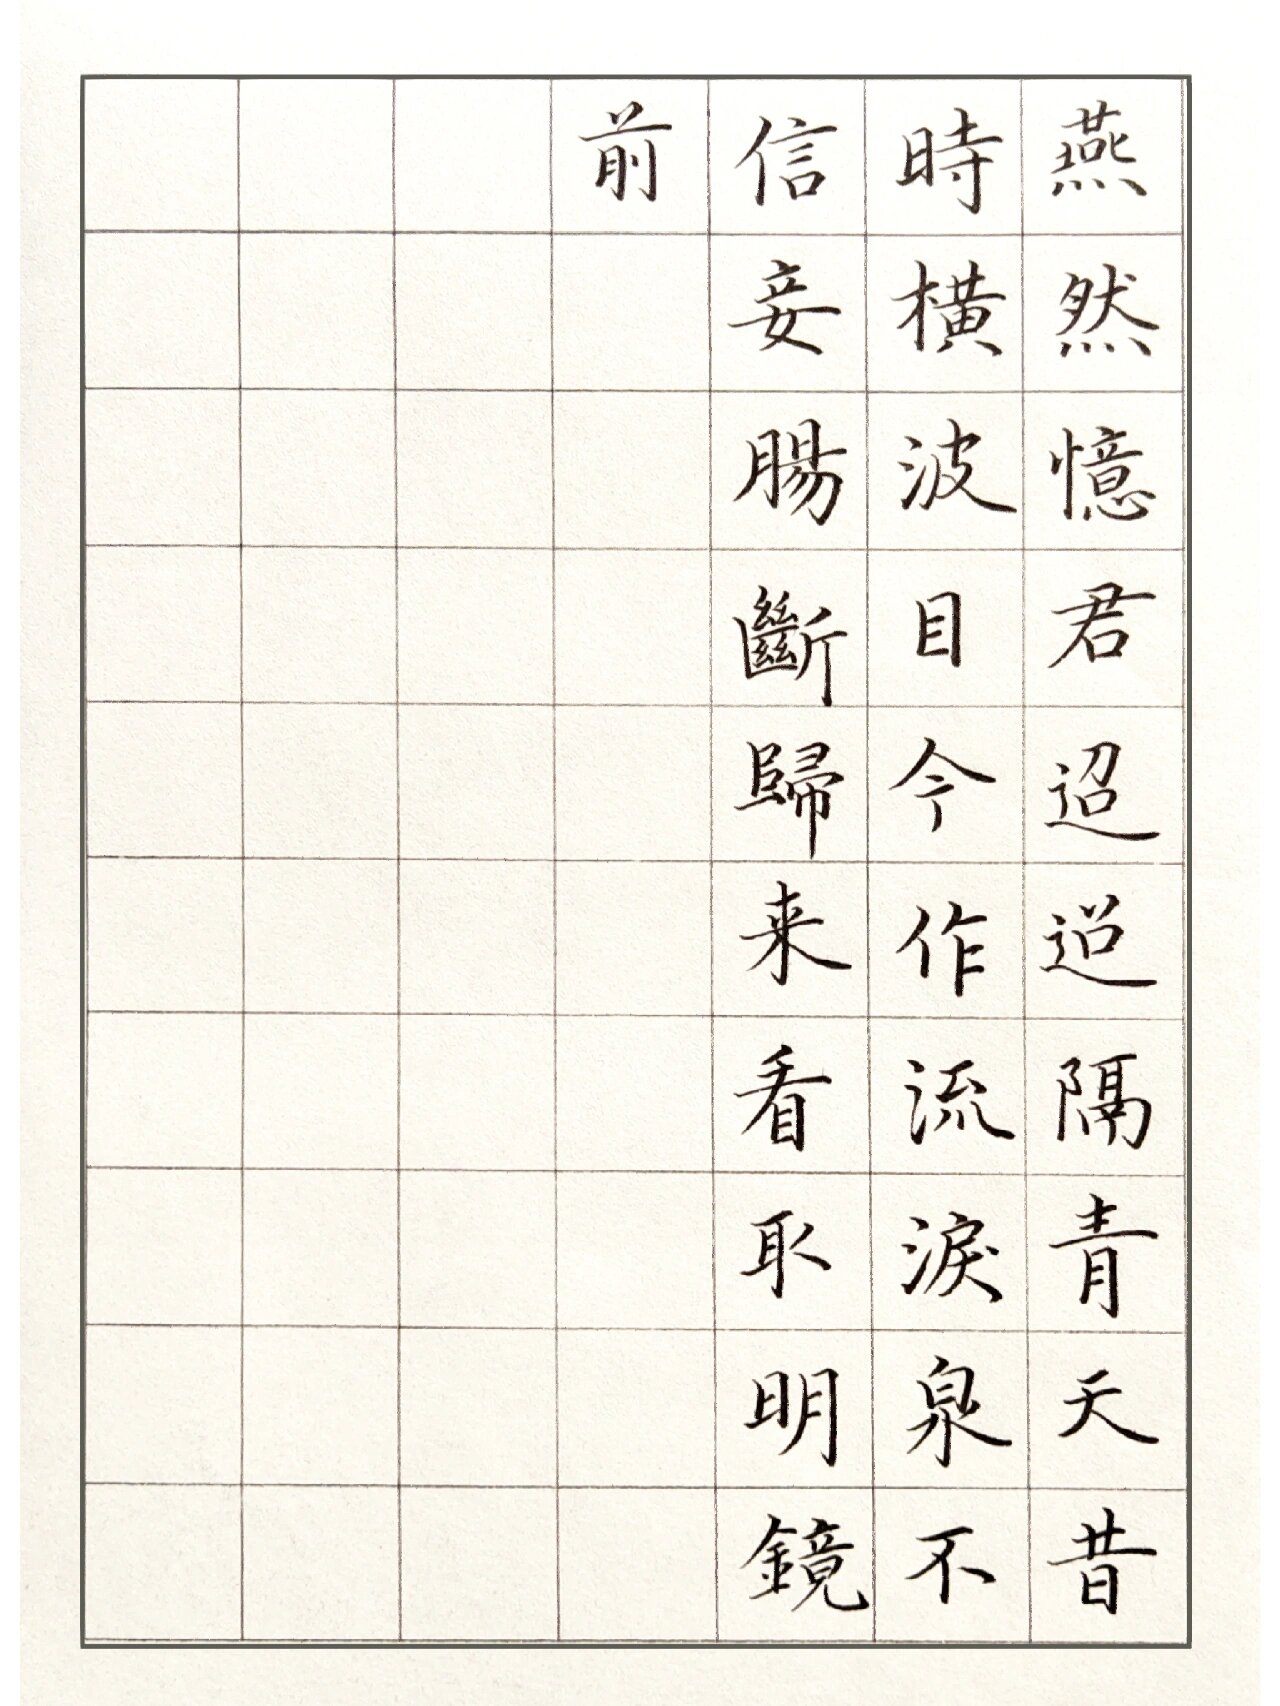 燕然憶君迢迢隔青天昔
時橫波目今作流淚泉不
信妾腸斷歸来看取明鏡
前